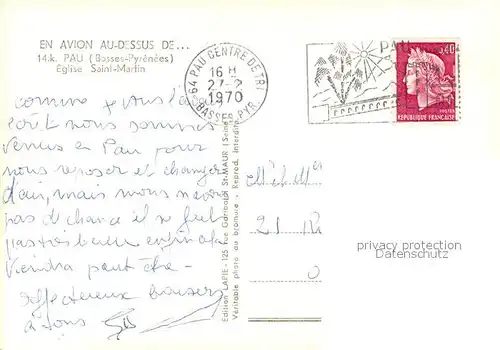 EN AVION AU-DESSUS DE...
14.k. PAU (Basses-Pyrénées)
Eglise Saint-Martin
64 PAU CENTRE DE TRI
16 H
27-2
1970
BASSES-PYR.
PAU
0,40
POSTES
REPUBLIQUE FRANÇAISE
comme vous l'a
écrit nous sommes
venus en Pau pour
nous reposer et changer
d'air, mais nous n'avons
pas de chance il ne fait
pas très beau enfin cela
viendra peut être
affectueux baisers
à tous
Edition LAPIE - 126 rue Garibaldi St-MAUR (Seine)
Véritable photo au bromure - Reprod. interdite
Mr & Mme
21 R
privacy protection
Datenschutz